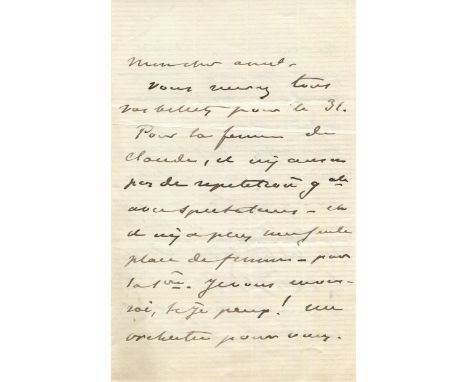 Mon cher ami.
Vous aurez tous
vos billets pour le 31.
Pour la femme de
Claude, il n'y aura
pas de repetition gale
avec spectateurs - et
il n'y a plus une seule
place de femme - pour
la 1ère. Je vous enver-
rai, si je peux! un
orchestre pour vous.